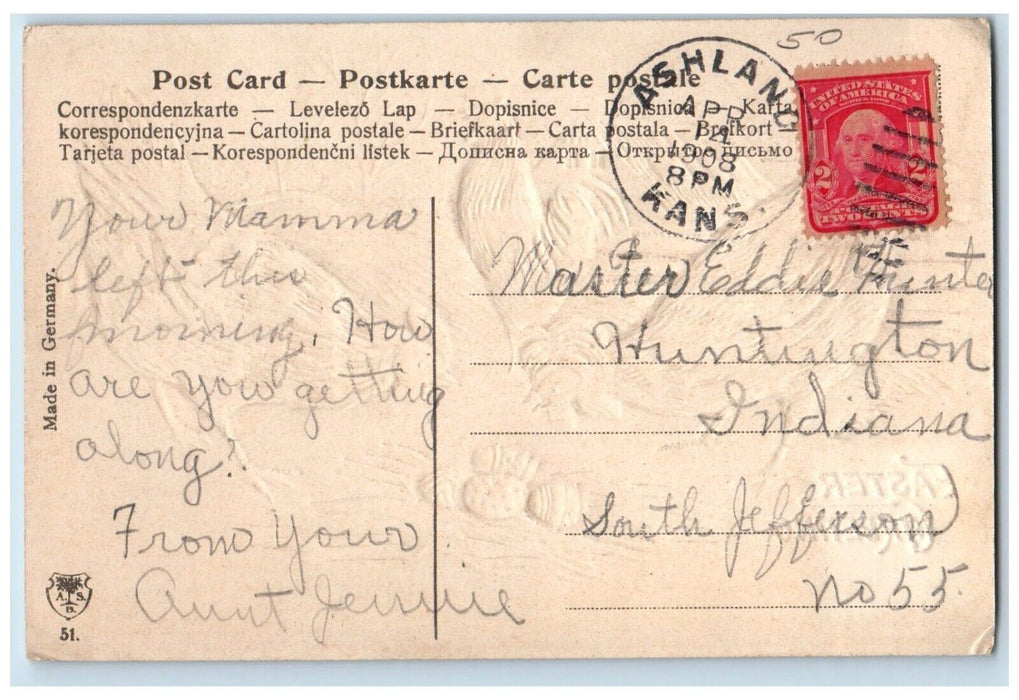 50
Post Card — Postkarte — Carte postale
Correspondenzkarte — Levelező Lap — Dopisnice — Dopisnica — Karta
korespondencyjna — Cartolina postale — Briefkaart — Carta postala — Brefkort —
Tarjeta postal — Korespondenčni listek — Дописна карта — Открытое письмо
ASHLAND
APR
14
1908
8 PM
KANS
UNITED STATES
OF AMERICA
2 2
TWO CENTS
Your Mamma
left this
morning. How
are you getting
along?
From Your
Aunt Jennie
Master Eddie Hunter
Huntington
Indiana
South Jefferson
No 55.
EASTER
Made in Germany.
A. S.
B.
51.